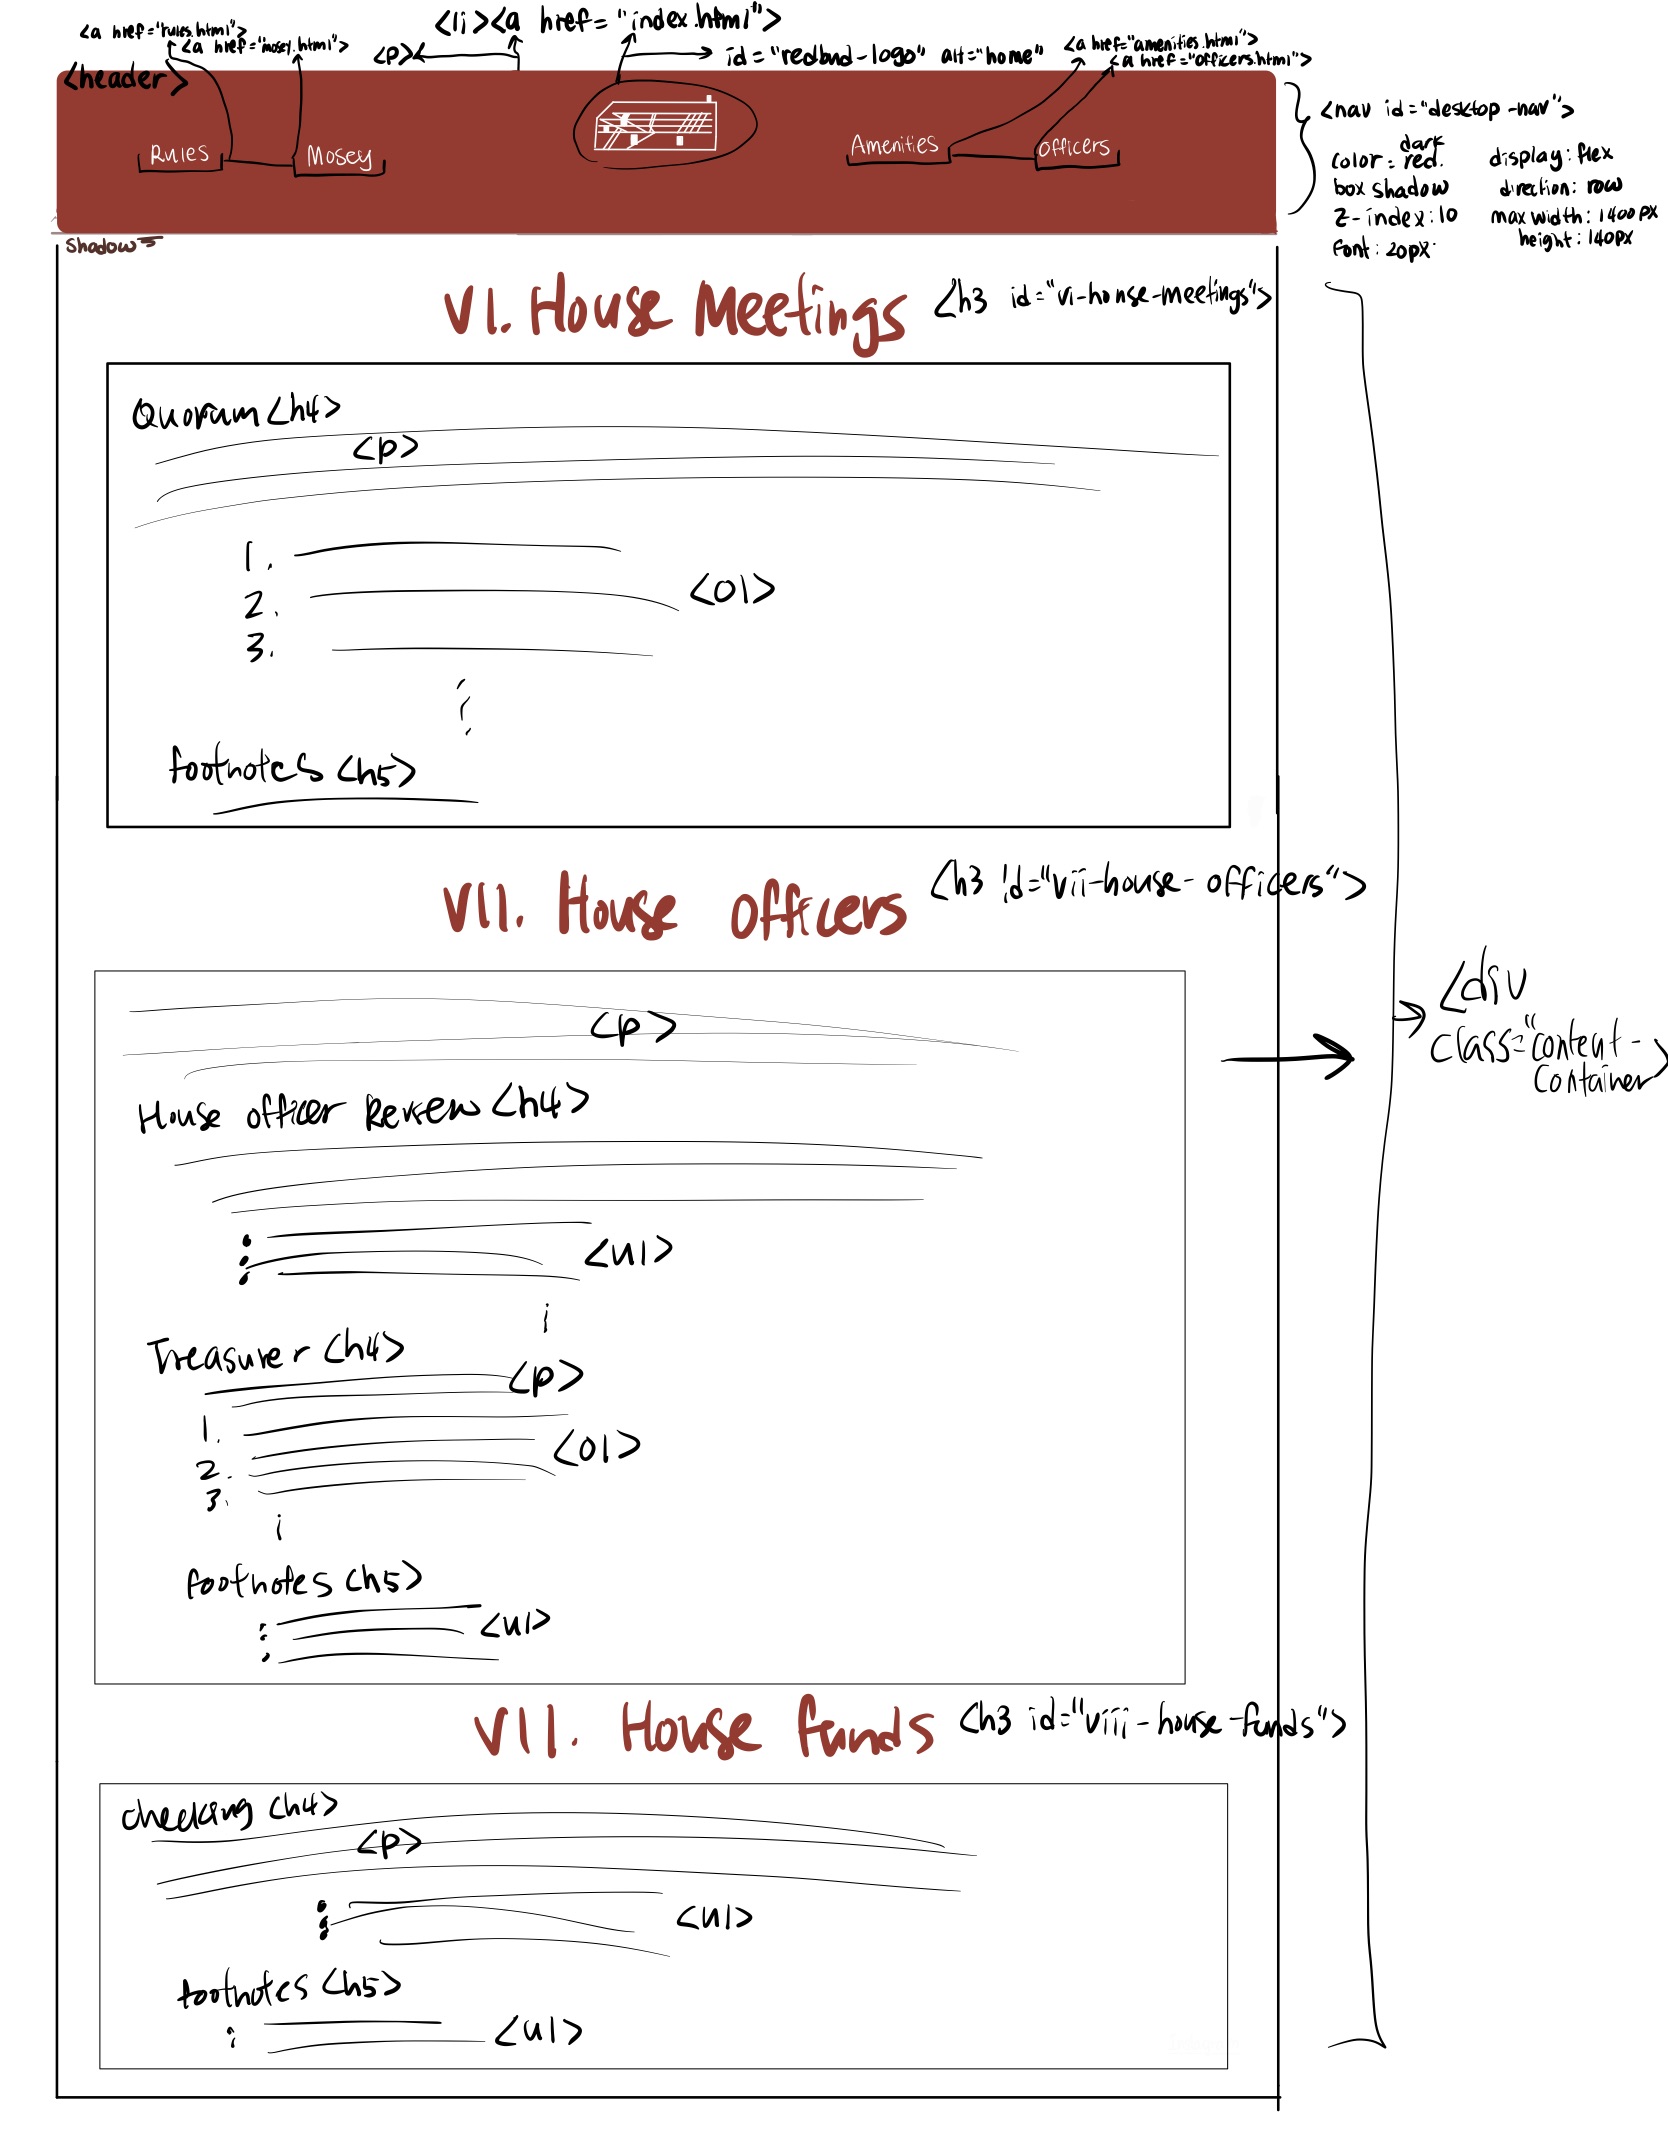 <a href="rules.html">
<a href="mosey.html">
<li><a href="index.html">
<p>
id="redbud-logo" alt="home"
<a href="amenities.html">
<a href="officers.html">
<header>
Rules
Mosey
Amenities
Officers
<nav id="desktop-nav">
color: dark red.
box shadow
z-index: 10
font: 20px
display: flex
direction: row
max width: 1400px
height: 140px
Shadow
VI. House Meetings
<h3 id="vi-house-meetings">
Quoram <h4>
<p>
1.
2.
3.
<ol>
footnotes <h5>
VII. House Officers
<h3 id="vii-house-officers">
<p>
<div
class="content-
container>
House officer Review <h4>
<ul>
Treasurer <h4>
<p>
1.
2.
3.
<ol>
footnotes <h5>
<ul>
VII. House funds
<h3 id="viii-house-funds">
checking <h4>
<p>
<ul>
footnotes <h5>
<ul>